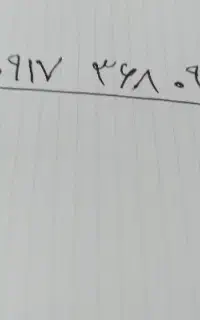 ۰۹۱۷ ۳۶۸ ۰۹